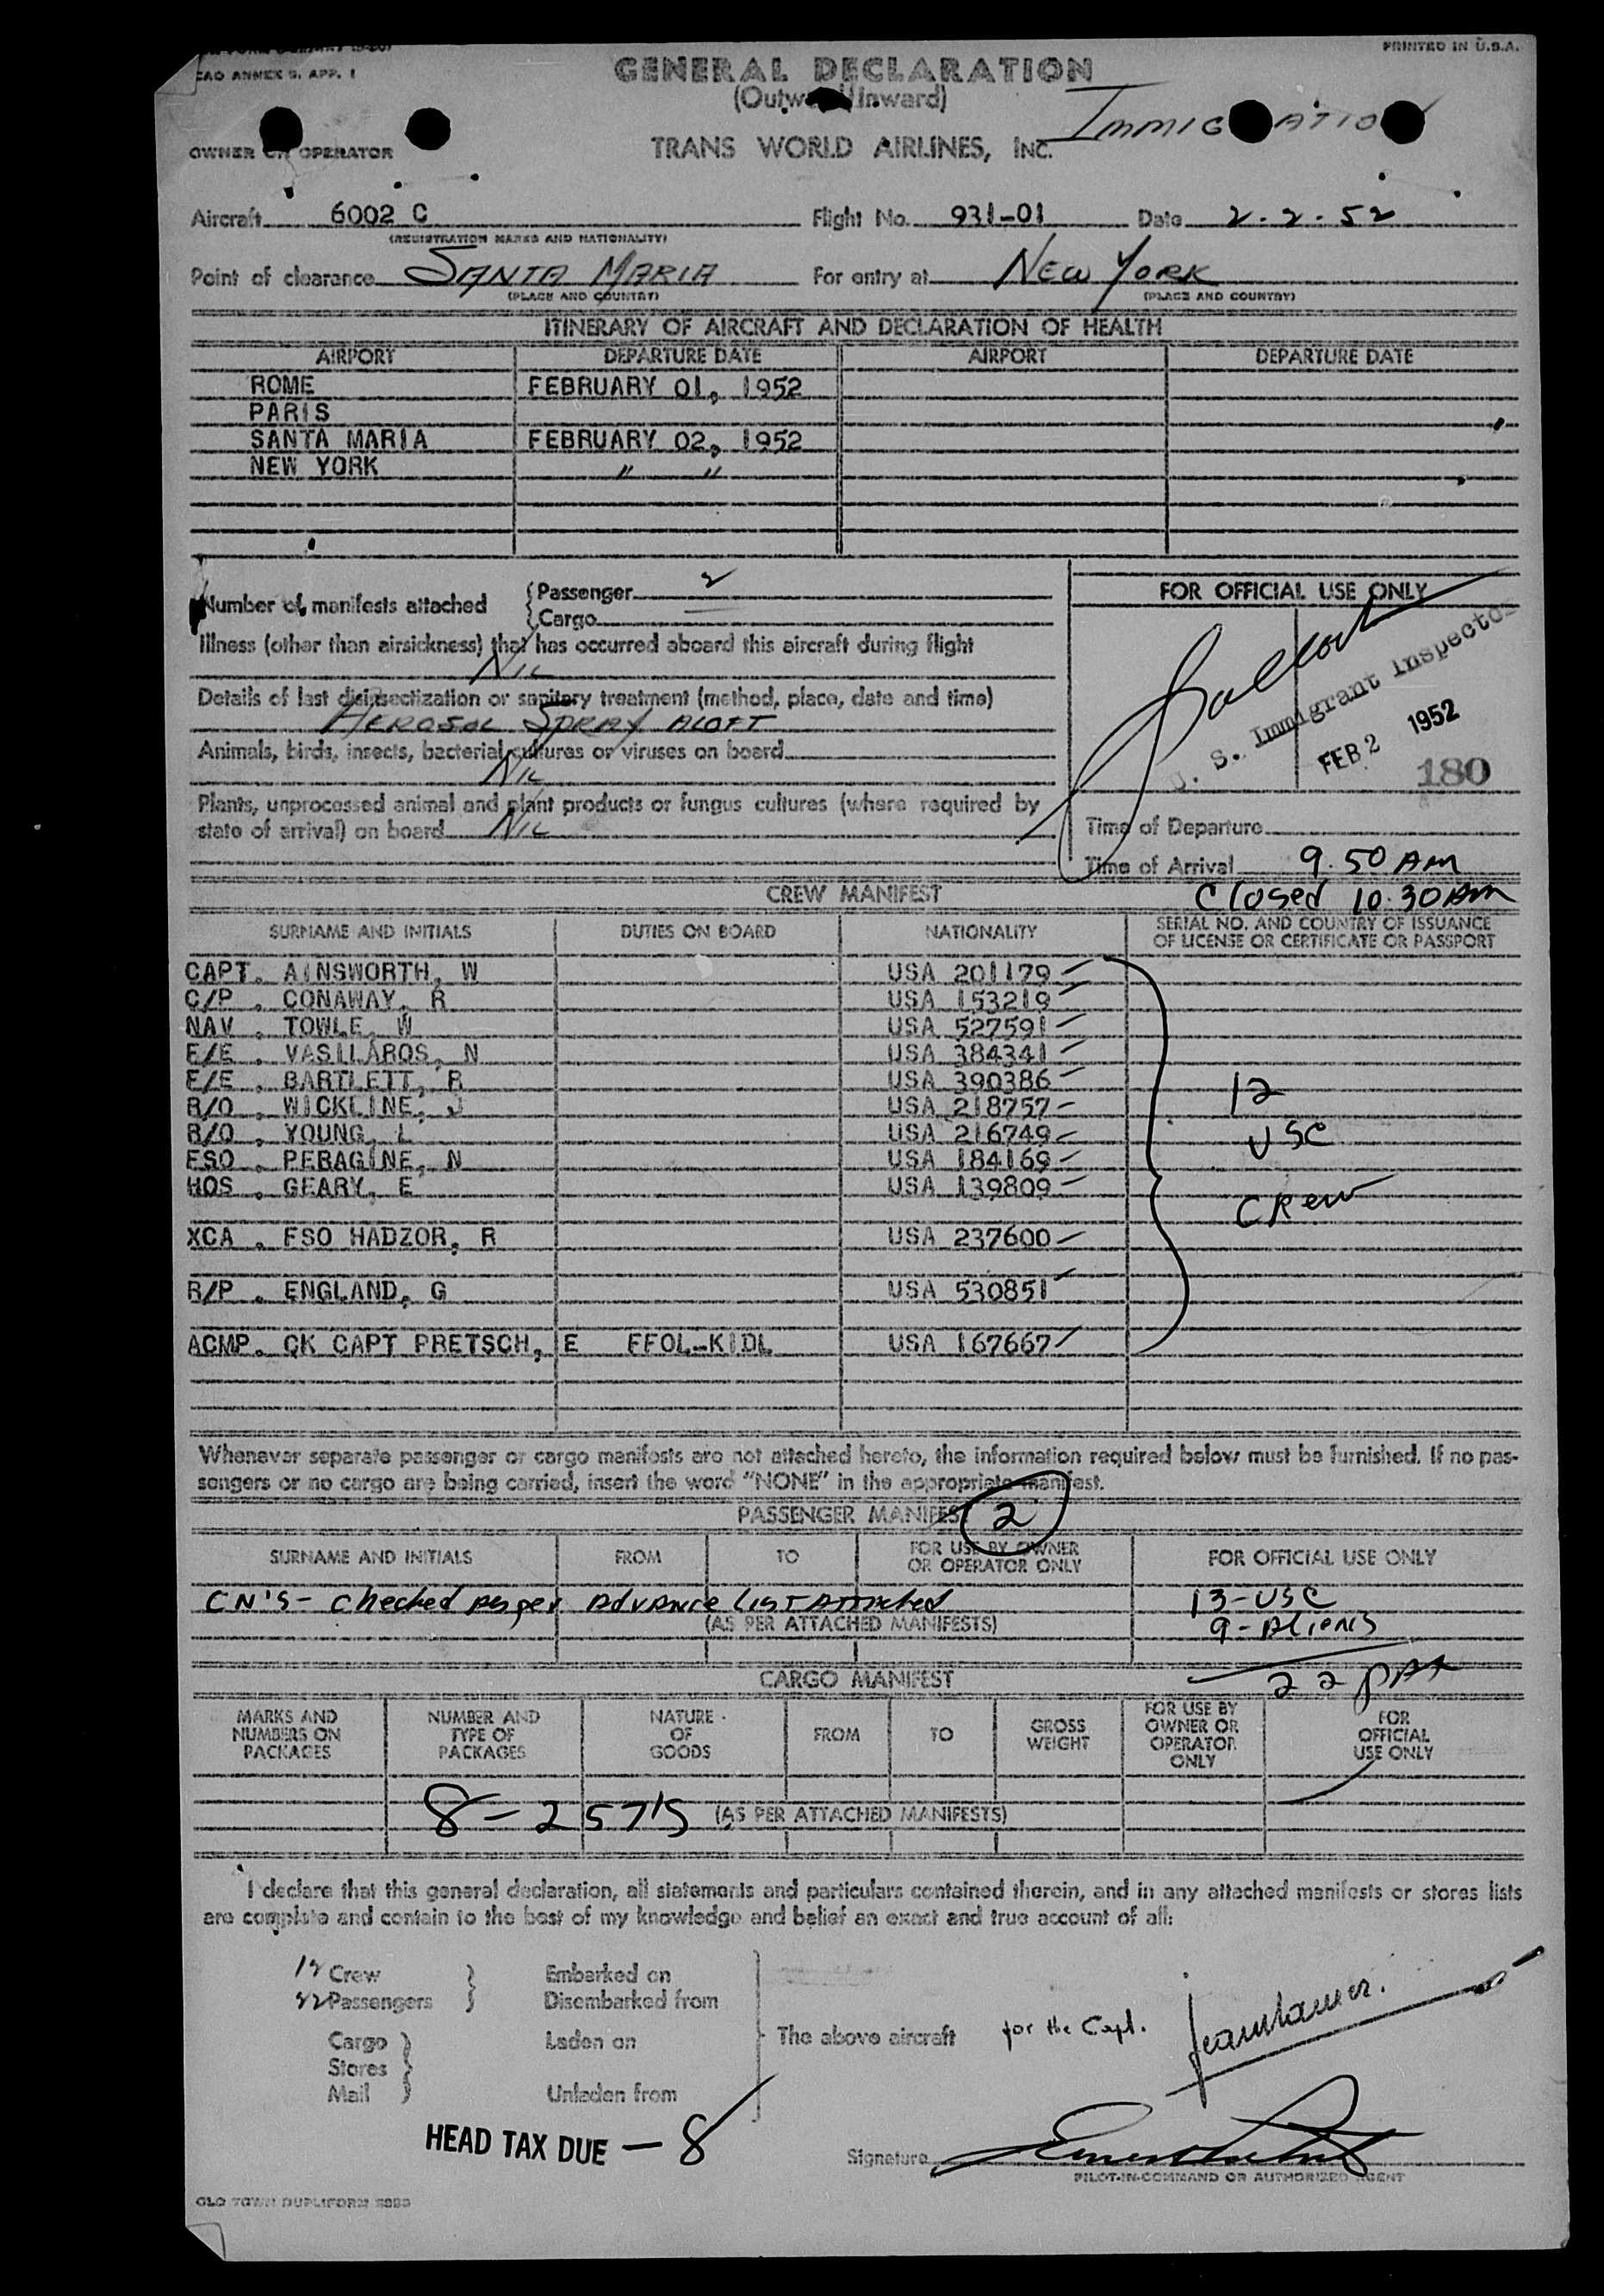 CAO ANNEX 9, APP. 1
PRINTED IN U.S.A.
GENERAL DECLARATION
(Outward/Inward)
IMMIGRATION
OWNER OR OPERATOR
TRANS WORLD AIRLINES, INC.
Aircraft 6002 C Flight No. 931-01 Date 2-2-52
(REGISTRATION MARKS AND NATIONALITY)
Point of clearance SANTA MARIA For entry at NEW YORK
(PLACE AND COUNTRY) (PLACE AND COUNTRY)
ITINERARY OF AIRCRAFT AND DECLARATION OF HEALTH
AIRPORT DEPARTURE DATE AIRPORT DEPARTURE DATE
ROME FEBRUARY 01, 1952
PARIS
SANTA MARIA FEBRUARY 02, 1952
NEW YORK " "
Number of manifests attached
Passenger 2
Cargo —
Illness (other than airsickness) that has occurred aboard this aircraft during flight
NIL
Details of last disinsectization or sanitary treatment (method, place, date and time)
AEROSOL SPRAY ALOFT
Animals, birds, insects, bacterial cultures or viruses on board
NIL
Plants, unprocessed animal and plant products or fungus cultures (where required by
state of arrival) on board NIL
FOR OFFICIAL USE ONLY
U. S. Immigrant Inspector
FEB 2 1952
180
Time of Departure
Time of Arrival 9.50 AM
Closed 10.30 AM
CREW MANIFEST
SURNAME AND INITIALS DUTIES ON BOARD NATIONALITY SERIAL NO. AND COUNTRY OF ISSUANCE
OF LICENSE OR CERTIFICATE OR PASSPORT
CAPT. AINSWORTH, W USA 201179
C/P . CONAWAY, R USA 153219
NAV . TOWLE, W USA 527591
F/E . VASILAROS, N USA 384341
F/E . BARTLETT, R USA 390386
R/O . WICKLINE, J USA 218757
R/O . YOUNG, L USA 216749
FSO . PERAGINE, N USA 184169
HOS . GEARY, E USA 139809
XCA . FSO HADZOR, R USA 237600
R/P . ENGLAND, G USA 530851
ACMP. CK CAPT PRETSCH, E FFOL-KIDL USA 167667
12
USC
CREW
Whenever separate passenger or cargo manifests are not attached hereto, the information required below must be furnished. If no pas-
sengers or no cargo are being carried, insert the word "NONE" in the appropriate manifest.
PASSENGER MANIFEST 2
SURNAME AND INITIALS FROM TO FOR USE BY OWNER
OR OPERATOR ONLY FOR OFFICIAL USE ONLY
CN'S - Checked as per Advance List Attached 13-USC
(AS PER ATTACHED MANIFESTS) 9-Aliens
22 pax
CARGO MANIFEST
MARKS AND
NUMBERS ON
PACKAGES
NUMBER AND
TYPE OF
PACKAGES
NATURE
OF
GOODS
FROM
TO
GROSS
WEIGHT
FOR USE BY
OWNER OR
OPERATOR
ONLY
FOR
OFFICIAL
USE ONLY
8 - 257'S (AS PER ATTACHED MANIFESTS)
I declare that this general declaration, all statements and particulars contained therein, and in any attached manifests or stores lists
are complete and contain to the best of my knowledge and belief an exact and true account of all:
12 Crew Embarked on
22 Passengers Disembarked from
Cargo Laden on
The above aircraft for the Capt.
Stores
Mail Unladen from
HEAD TAX DUE — 8
Signature
PILOT-IN-COMMAND OR AUTHORIZED AGENT
OLD TOWN DUPLIFORM